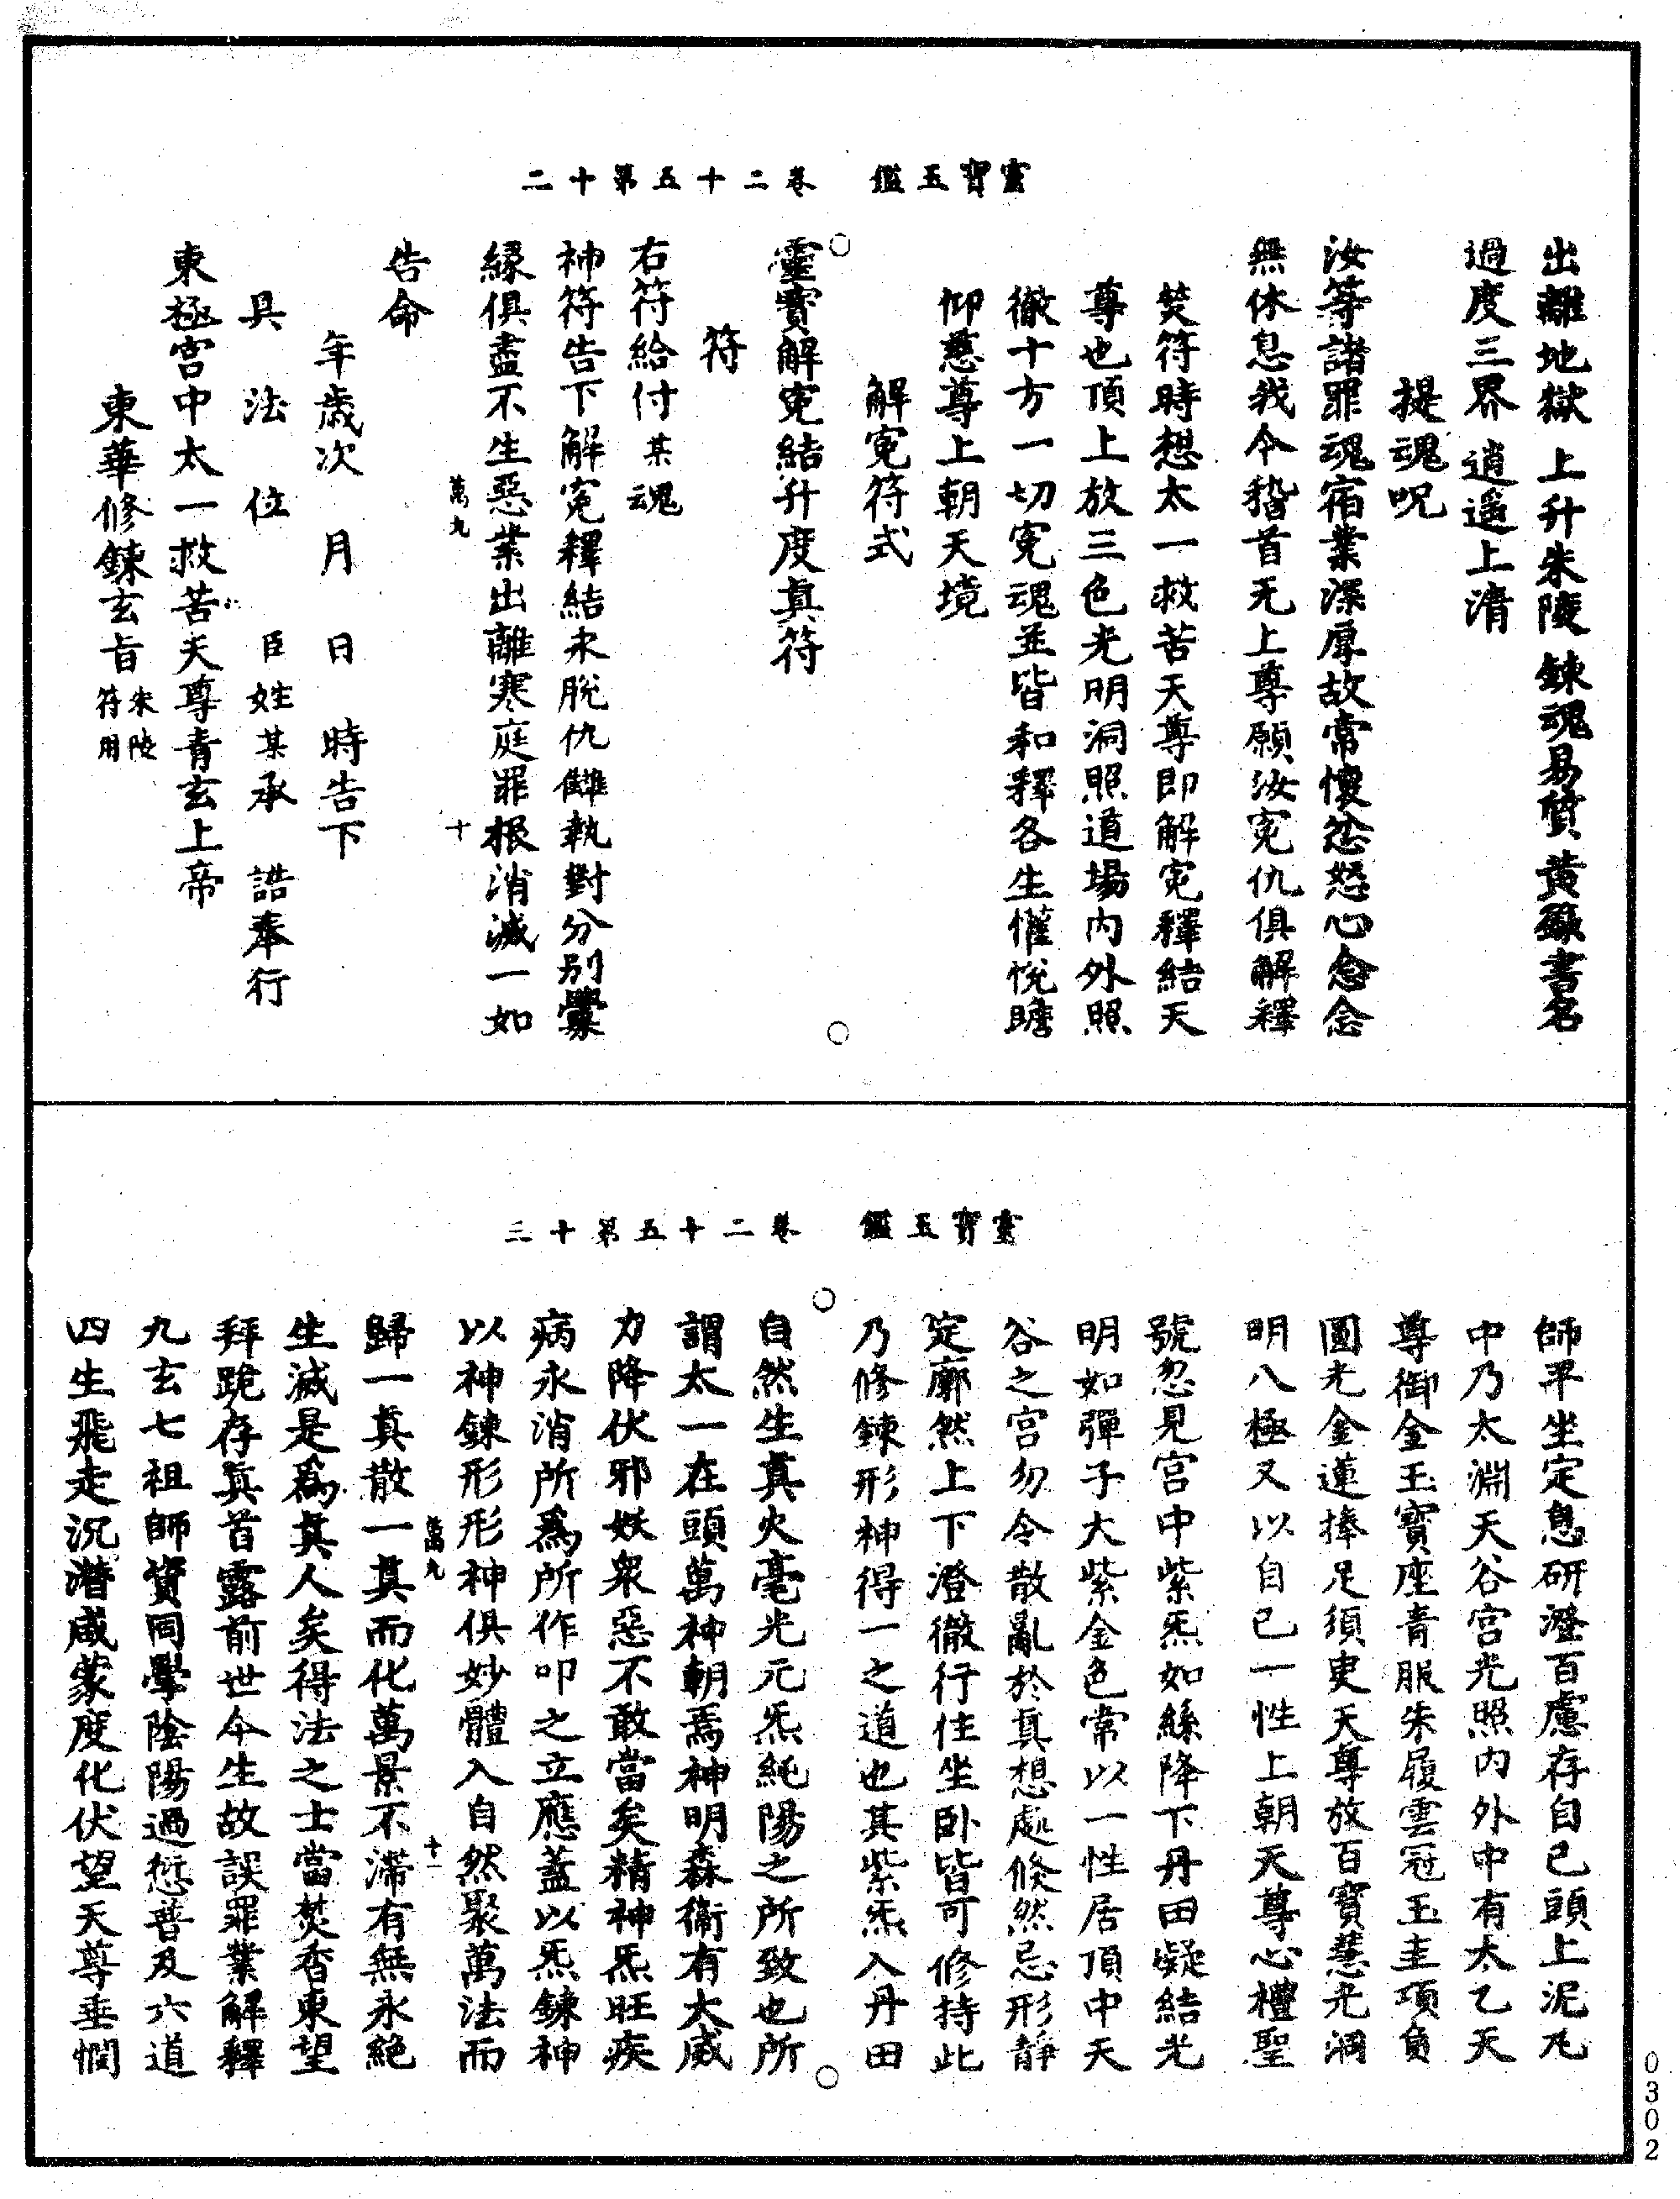 靈寶玉鑑　卷二十五第十二
出離地獄　上升朱陵　鍊魂易質　黃籙書名
過度三界　逍遥上清
提魂呪
汝等諸罪魂宿業深厚故常懷忿怒心念念
無休息我今稽首无上尊願汝寃仇俱解釋
焚符時想太一救苦天尊即解寃釋結天
尊也頂上放三色光明洞照道場内外照
徹十方一切寃魂並皆和釋各生懽悅瞻
仰慈尊上朝天境
解寃符式
靈寶解寃結升度真符
符
右符給付某魂
神符告下解寃釋結永脫仇讎執對分别釁
緣俱盡不生惡業出離寒庭罪根消滅一如
萬九　十
告命
年歲次　月　日　時告下
具　法　位　臣姓某承　誥奉行
東極宫中太一救苦天尊青玄上帝
東華修鍊玄旨朱陵符用
靈寶玉鑑　卷二十五第十三
師平坐定息研澄百慮存自己頭上泥丸
中乃太淵天谷宫光照内外中有太乙天
尊御金玉寶座青服朱履雲冠玉圭項負
圓光金蓮捧足須臾天尊放百寶慧光洞
明八極又以自己一性上朝天尊心禮聖
號忽見宫中紫炁如絲降下丹田凝結光
明如彈子大紫金色常以一性居頂中天
谷之宫勿令散亂於真想處倏然忘形靜
定廓然上下澄徹行住坐卧皆可修持此
乃修鍊形神得一之道也其紫炁入丹田
自然生真火毫光元炁純陽之所致也所
謂太一在頭萬神朝焉神明森衞有大威
力降伏邪妖衆惡不敢當矣精神炁旺疾
病永消所爲所作叩之立應蓋以炁鍊神
以神鍊形形神俱妙體入自然聚萬法而
萬九　十一
歸一真散一真而化萬景不滯有無永絶
生滅是爲真人矣得法之士當焚香東望
拜跪存真首露前世今生故誤罪業解釋
九玄七祖師資同學陰陽過愆普及六道
四生飛走沉潛咸蒙度化伏望天尊垂憫
0302